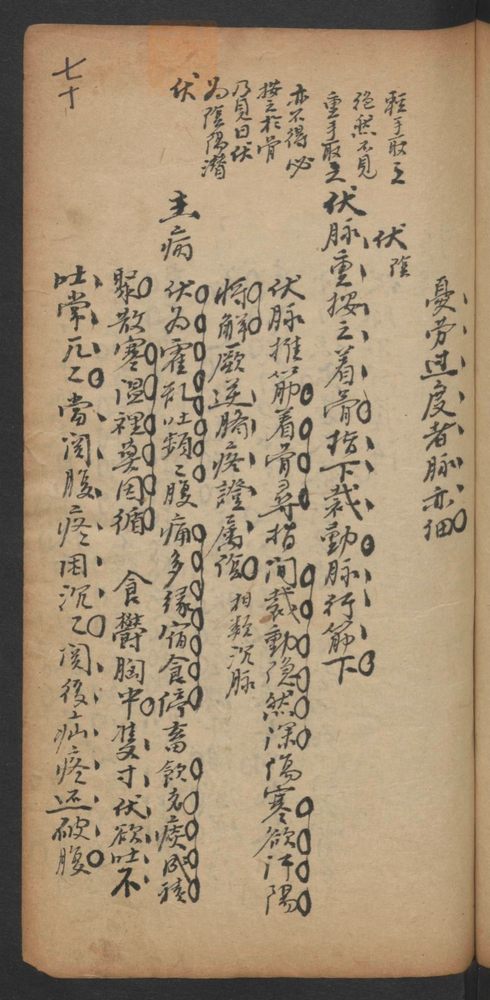 憂劳过度者脉亦细
伏陰
輕手取之
絕然不見
重手取之
亦不得必
按之於骨
乃見曰伏
為陰陽潛
伏
伏脉重按之着骨指下裁動脉行筋下
伏脉推筋着骨尋指间裁動隐然深伤寒欲汗陽
将解厥逆脐疼證属陰 相類沉脉
主病
伏为霍乱吐頻々腹痛多缘宿食停畜飲老痰成積
聚散寒温裡莫因循 食鬱胸中雙寸伏欲吐不
吐常兀々當関腹疼困沉々関後疝疼还破腹
七十